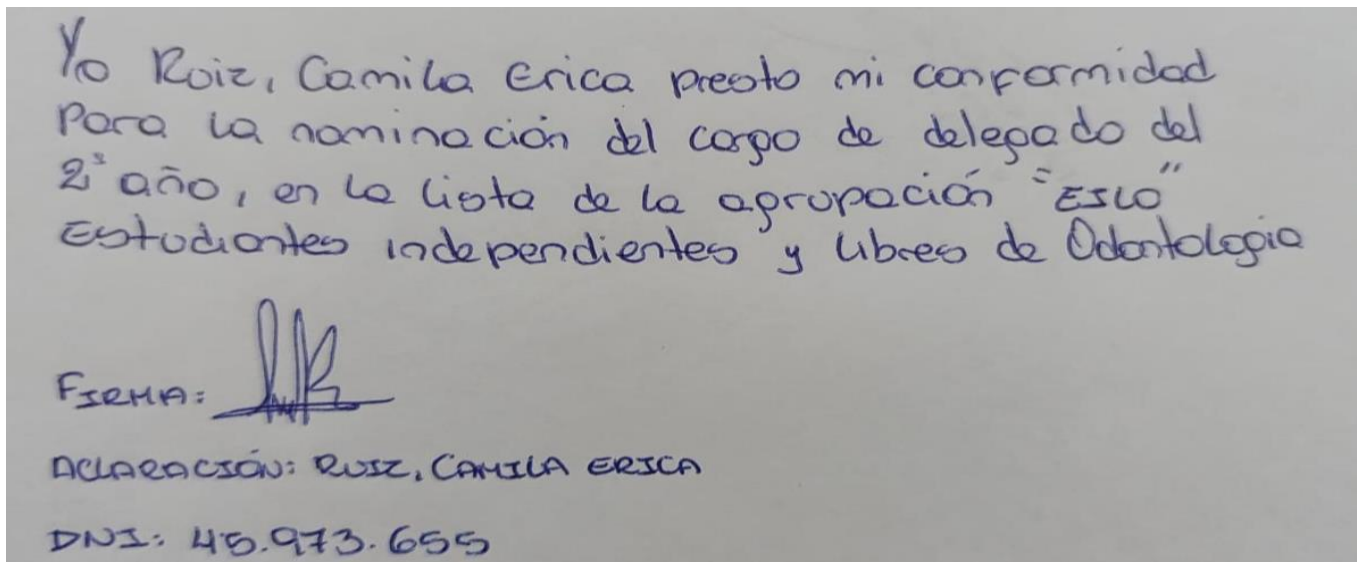 Yo Ruiz, Camila Erica presto mi conformidad
Para la nominación del cargo de delegado del
2° año, en la lista de la agrupación "EILO"
Estudiantes independientes y libres de Odontologia
FIRMA:
ACLARACIÓN: RUIZ, CAMILA ERICA
DNI: 45.973.655